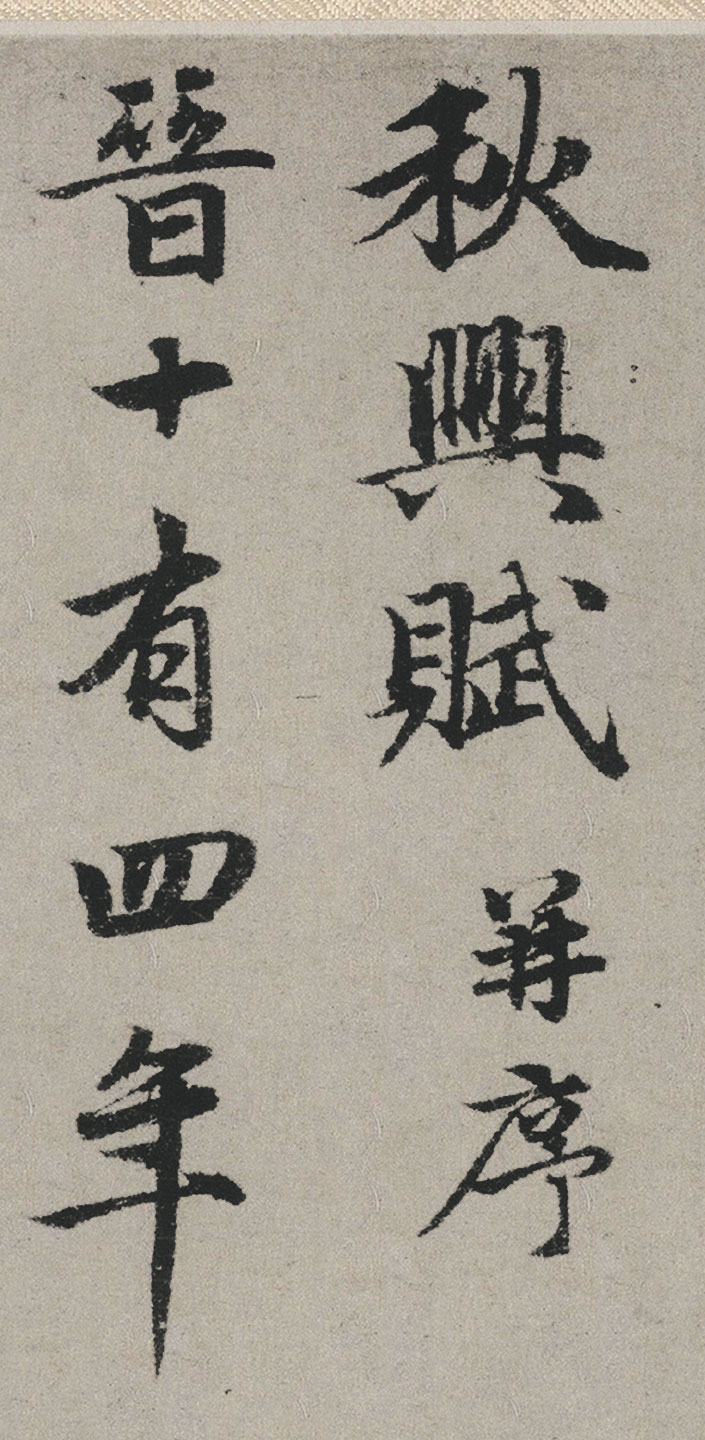 秋興賦 并序
晉十有四年